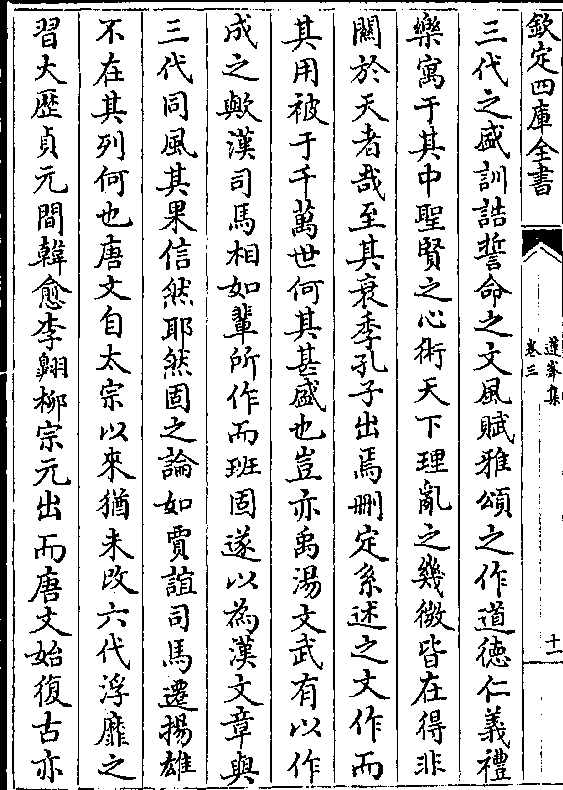 欽定四庫全書
蓮峯集
卷三
十一
三代之盛訓誥誓命之文風賦雅頌之作道德仁義禮
樂寓于其中聖賢之心術天下理亂之幾微皆在得非
關於天者哉至其衰季孔子出焉刪定系述之文作而
其用被于千萬世何其甚盛也豈亦禹湯文武有以作
成之歟漢司馬相如輩所作而班固遂以為漢文章與
三代同風其果信然耶然固之論如賈誼司馬遷揚雄
不在其列何也唐文自太宗以來猶未改六代浮靡之
習大歴貞元間韓愈李翺柳宗元出而唐文始復古亦